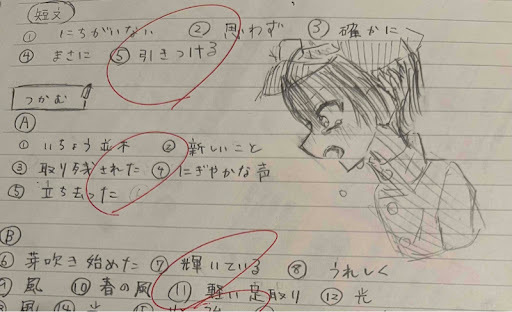 短文
① にちがいない ② 思わず ③ 確かに
④ まさに ⑤ 引きつける
つかむ
Ⓐ
① いちょう並木 ② 新しいこと
③ 取り残された ④ にぎやかな声
⑤ 立ち去った
Ⓑ
⑥ 芽吹き始めた ⑦ 輝いている ⑧ うれしく
風 ⑩ 春の風 ⑪ 軽い足取り ⑫ 光
風 ⑭